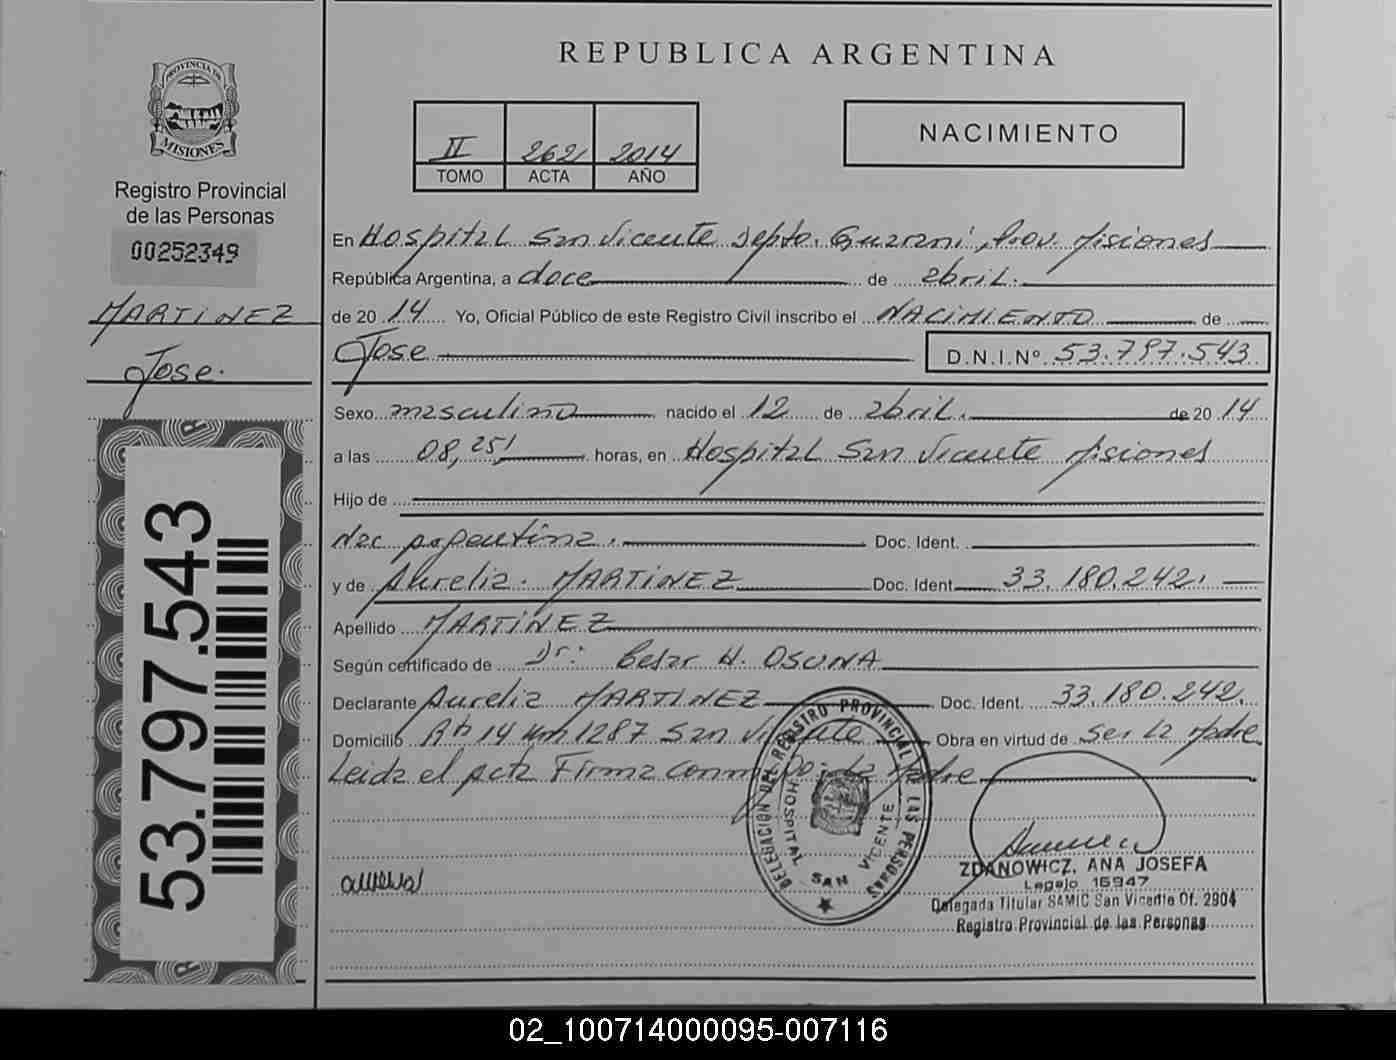 REPUBLICA ARGENTINA
PROVINCIA DE
MISIONES
Registro Provincial
de las Personas
00252349
MARTINEZ
Jose.
53.797.543
II 262 2014
TOMO ACTA AÑO
NACIMIENTO
En Hospital San Vicente Depto. Guarani, Prov. Misiones
República Argentina, a doce de abril.
de 2014 Yo, Oficial Público de este Registro Civil inscribo el NACIMIENTO de
Jose D.N.I.Nº 53.797.543
Sexo masculino nacido el 12 de abril. de 2014
a las 08,25 horas, en Hospital San Vicente Misiones
Hijo de
Nac argentina. Doc. Ident.
y de Aurelia. MARTINEZ Doc. Ident. 33.180.242.
Apellido MARTINEZ
Según certificado de Dr: Cesar H. OSUNA
Declarante Aurelia MARTINEZ Doc. Ident. 33.180.242.
Domicilio Rta 14 km 1287 San Vicente Obra en virtud de Ser la Madre
Leida el Acta Firma conmigo: La Madre
DELEGACION DEL REGISTRO PROVINCIAL DE LAS PERSONAS
HOSPITAL SAN VICENTE
ZDANOWICZ, ANA JOSEFA
Legajo 16947
Delegada Titular SAMIC San Vicente Of. 2904
Registro Provincial de las Personas
02_100714000095-007116